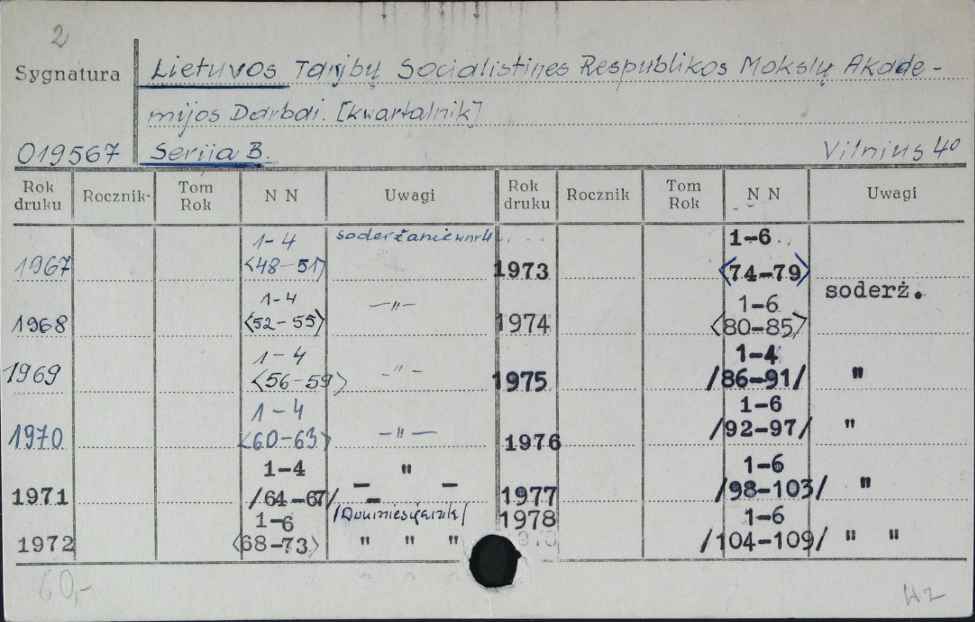 2
Sygnatura
Lietuvos Tarybų Socialistines Respublikos Mokslų Akade-
mijos Darbai. [kwartalnik]
019567 Serija B. Vilnius 4°
Rok druku Rocznik Tom Rok N N Uwagi Rok druku Rocznik Tom Rok N N Uwagi
1967 1-4 <48-51> soderżanie w nr 4 1973 1-6 <74-79>
1968 1-4 <52-55> —"— 1974 1-6 <80-85> soderż.
1969 1-4 <56-59> -"- 1975 1-4 /86-91/ "
1970 1-4 <60-63> —"— 1976 1-6 /92-97/ "
1971 1-4 /64-67/ — " — — 1977 1-6 /98-103/ "
1972 1-6 <68-73> /Dwumiesięcznik/ " " " 1978 1-6 /104-109/ " "
60,-